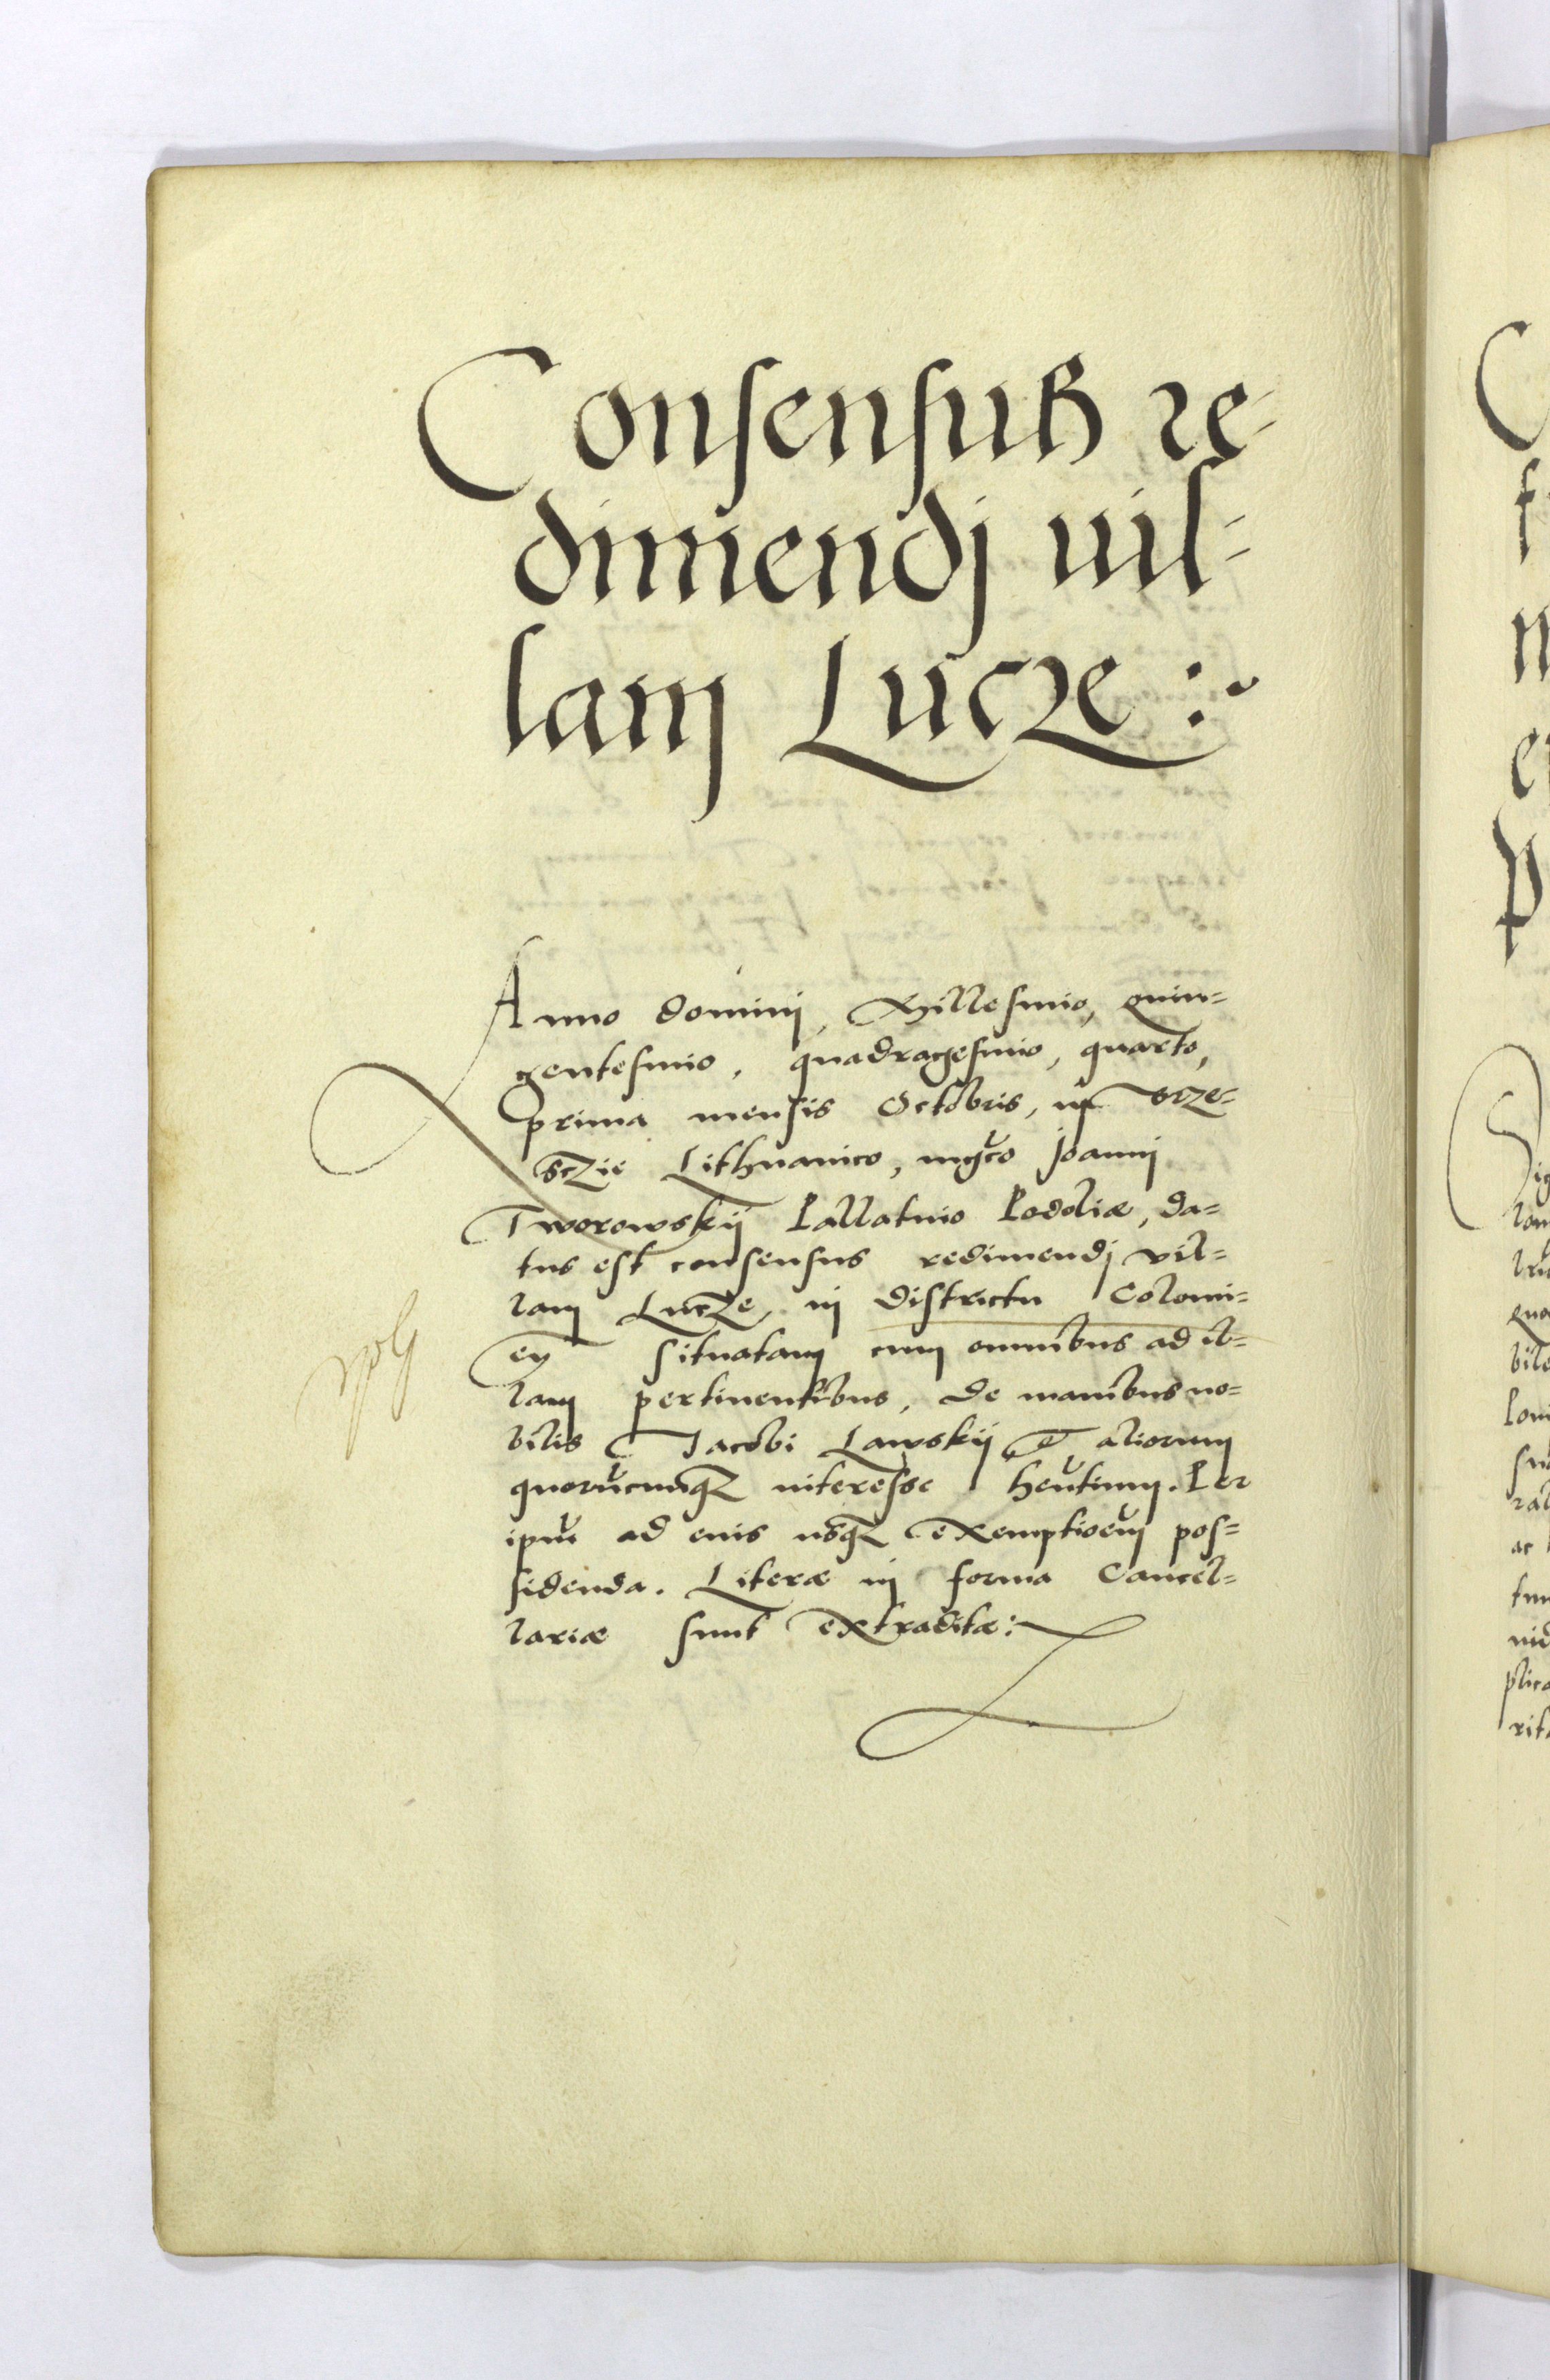 Consensus re-
dimendj uil-
lam Lucze :~
Anno dominj, Millesimo, quin=
gentesimo, quadragesimo, quarto,
prima mensis Octobris, in Brze=
sczie Lithuanico, mgco Joannj
Tworowskij Pallatino Podoliæ, da=
tus est consensus redimendj vil=
lam Lucze, in districtu Colomi=
en situatam cum omnibus ad il=
lam pertinentibus, de manibus no=
bilis Jacobi Lawskij et aliorum
quorucunqz interesse hentium. Per
ipm ad eius usqz exemptioem pos=
sidenda. Literæ in forma Cancel=
lariæ sunt extraditæ: